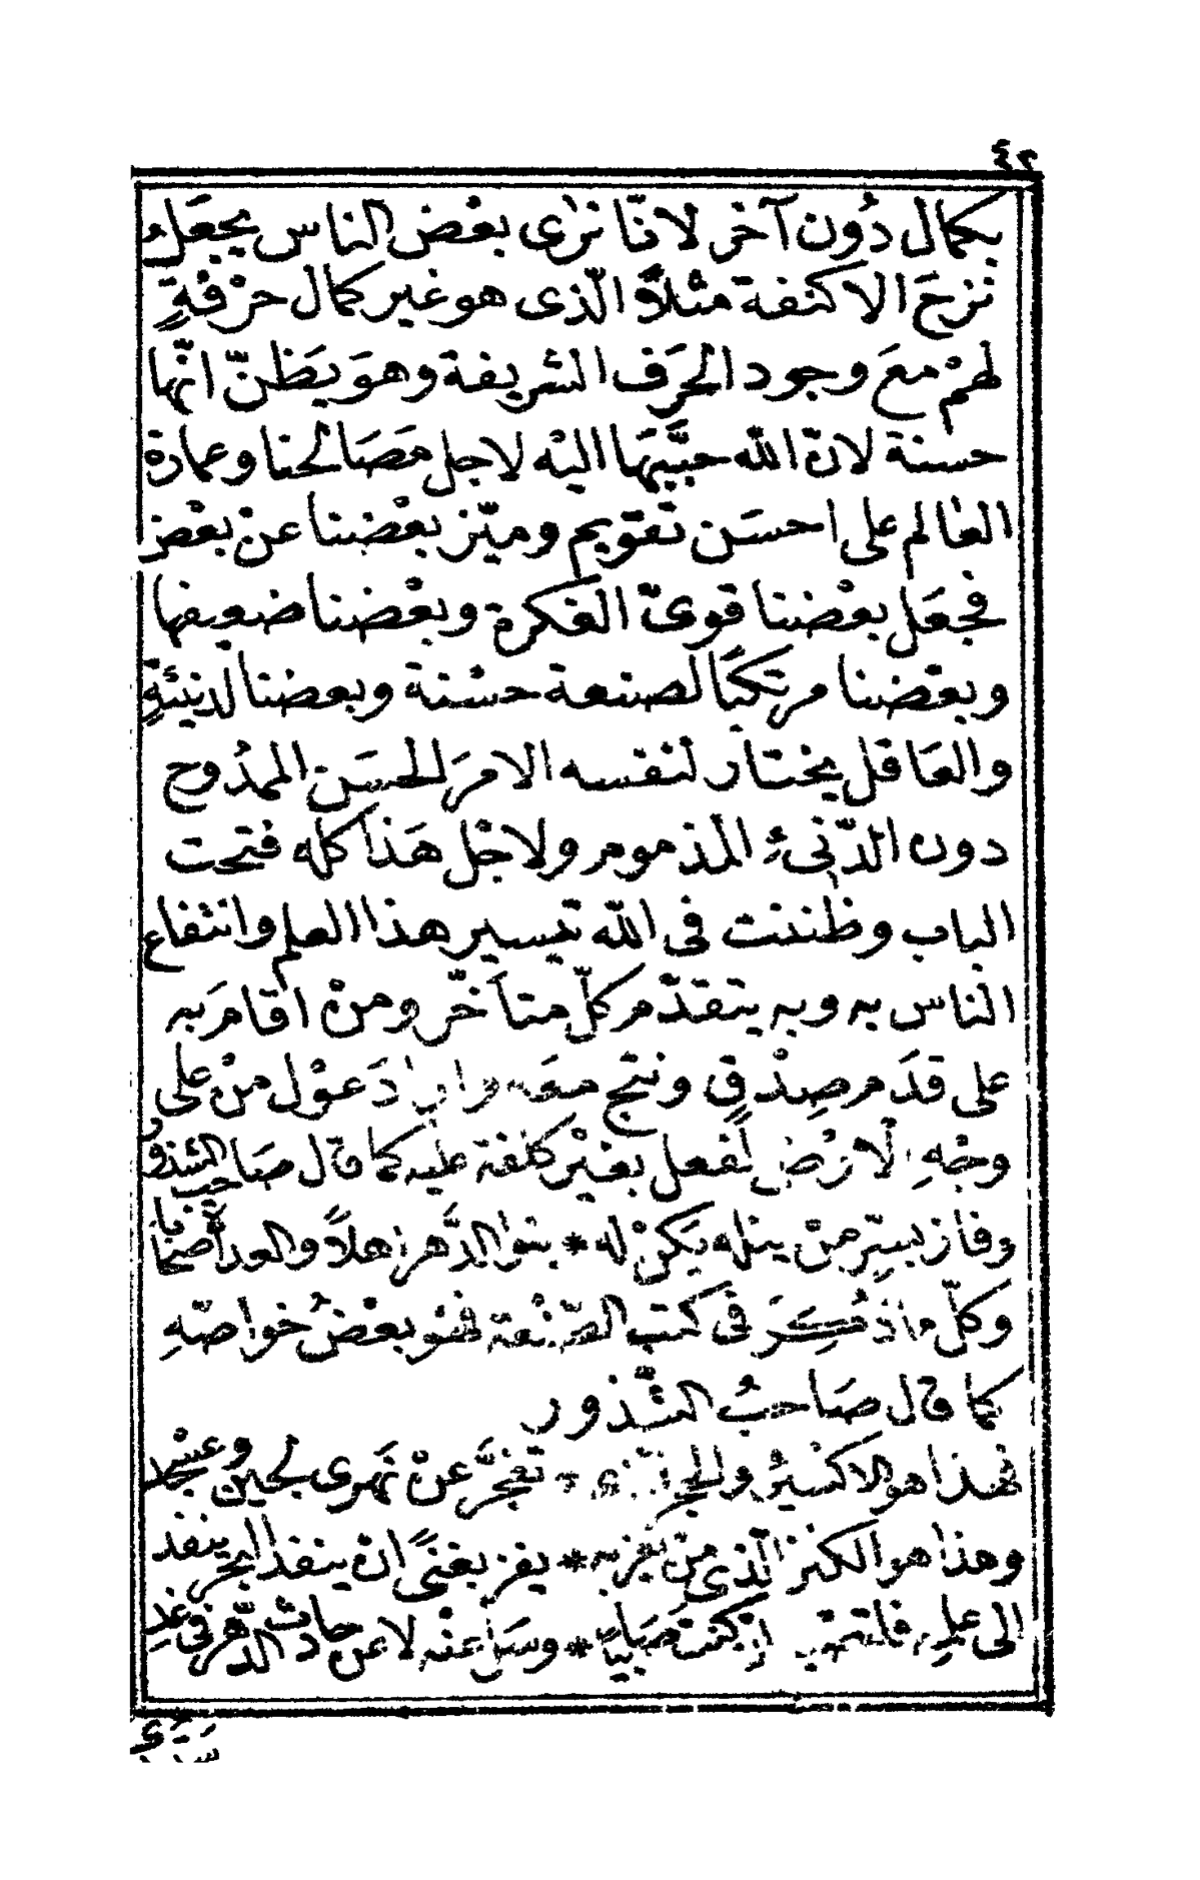 ٤٢
بكمال دُون آخر لانّا نرٰى بعْض الناس يجعَل
نزحَ الاكنفة مثْلاً الّذى هو غير كمال حرْفةٍ
لهمْ معَ وجود الحِرَف الشريفة وهوَ يَظنّ انّها
حسنة لانّ اللّه حبَّبَهَا اليْه لاجل مَصَالحنا وعمارة
العٰالم على احسَن تقويم وميّز بعْضنا عنْ بعْض
فجعَل بعْضنا قوىّ الفكرة وبعْضنا ضعيفها
وبعْضنا مرتكبًا لصنعة حسْنة وبعضنا لدنيئةٍ
والعَاقل يختار لنفسه الامرَ الحسَن الممدُوح
دون الدّنىءِ المذموم ولاجْل هَذا كله فتحت
الباب وظننت فى اللّه تيسير هذا العلم وانتفاع
الناس به وبه يتقدّم كلّ متأخّر ومنْ اقامَ به
على قدَم صِدْقٍ ونتج معَه دَعوْل منْ على
وجْهِ الارْض لفعل بغيْر كلفة عليه كما قال صَاحب الشذور
وفاز بسِرّ منْ ينله يكنْ له * بنوا الدَّهر نهلاً والعدا
وكلّ ما ذُكِرَ فى كتب الصّنْعة فهُو بعْضُ خواصّهِ
كما قال صَاحبُ الشّذور
فهذا هو الاكسيرُ والحجر الّذى * تفجَّر عنْ نهَرى لجين وعسْجد
وهذا هو الكنز الّذى منْ يفز به * يفز بغنىً انْ ينفد البحر ينفد
الى علمه كنت صَابيًا * وسَلْ عنْه لا عن حادث الدّهر فى غد